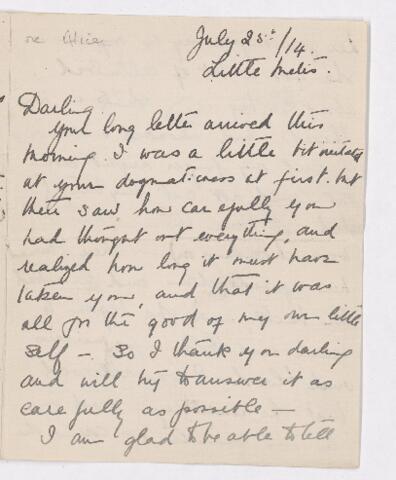 re Alice
July 25th/14.
Little Metis.
Darling
Your long letter arrived this
morning. I was a little bit irritated
at your dogmaticness at first. but
then saw how carefully you
had thought out everything, and
realized how long it must have
taken you, and that it was
all for the good of my own little
self – So I thank you darling
and will try to answer it as
carefully as possible –
I am glad to be able to tell